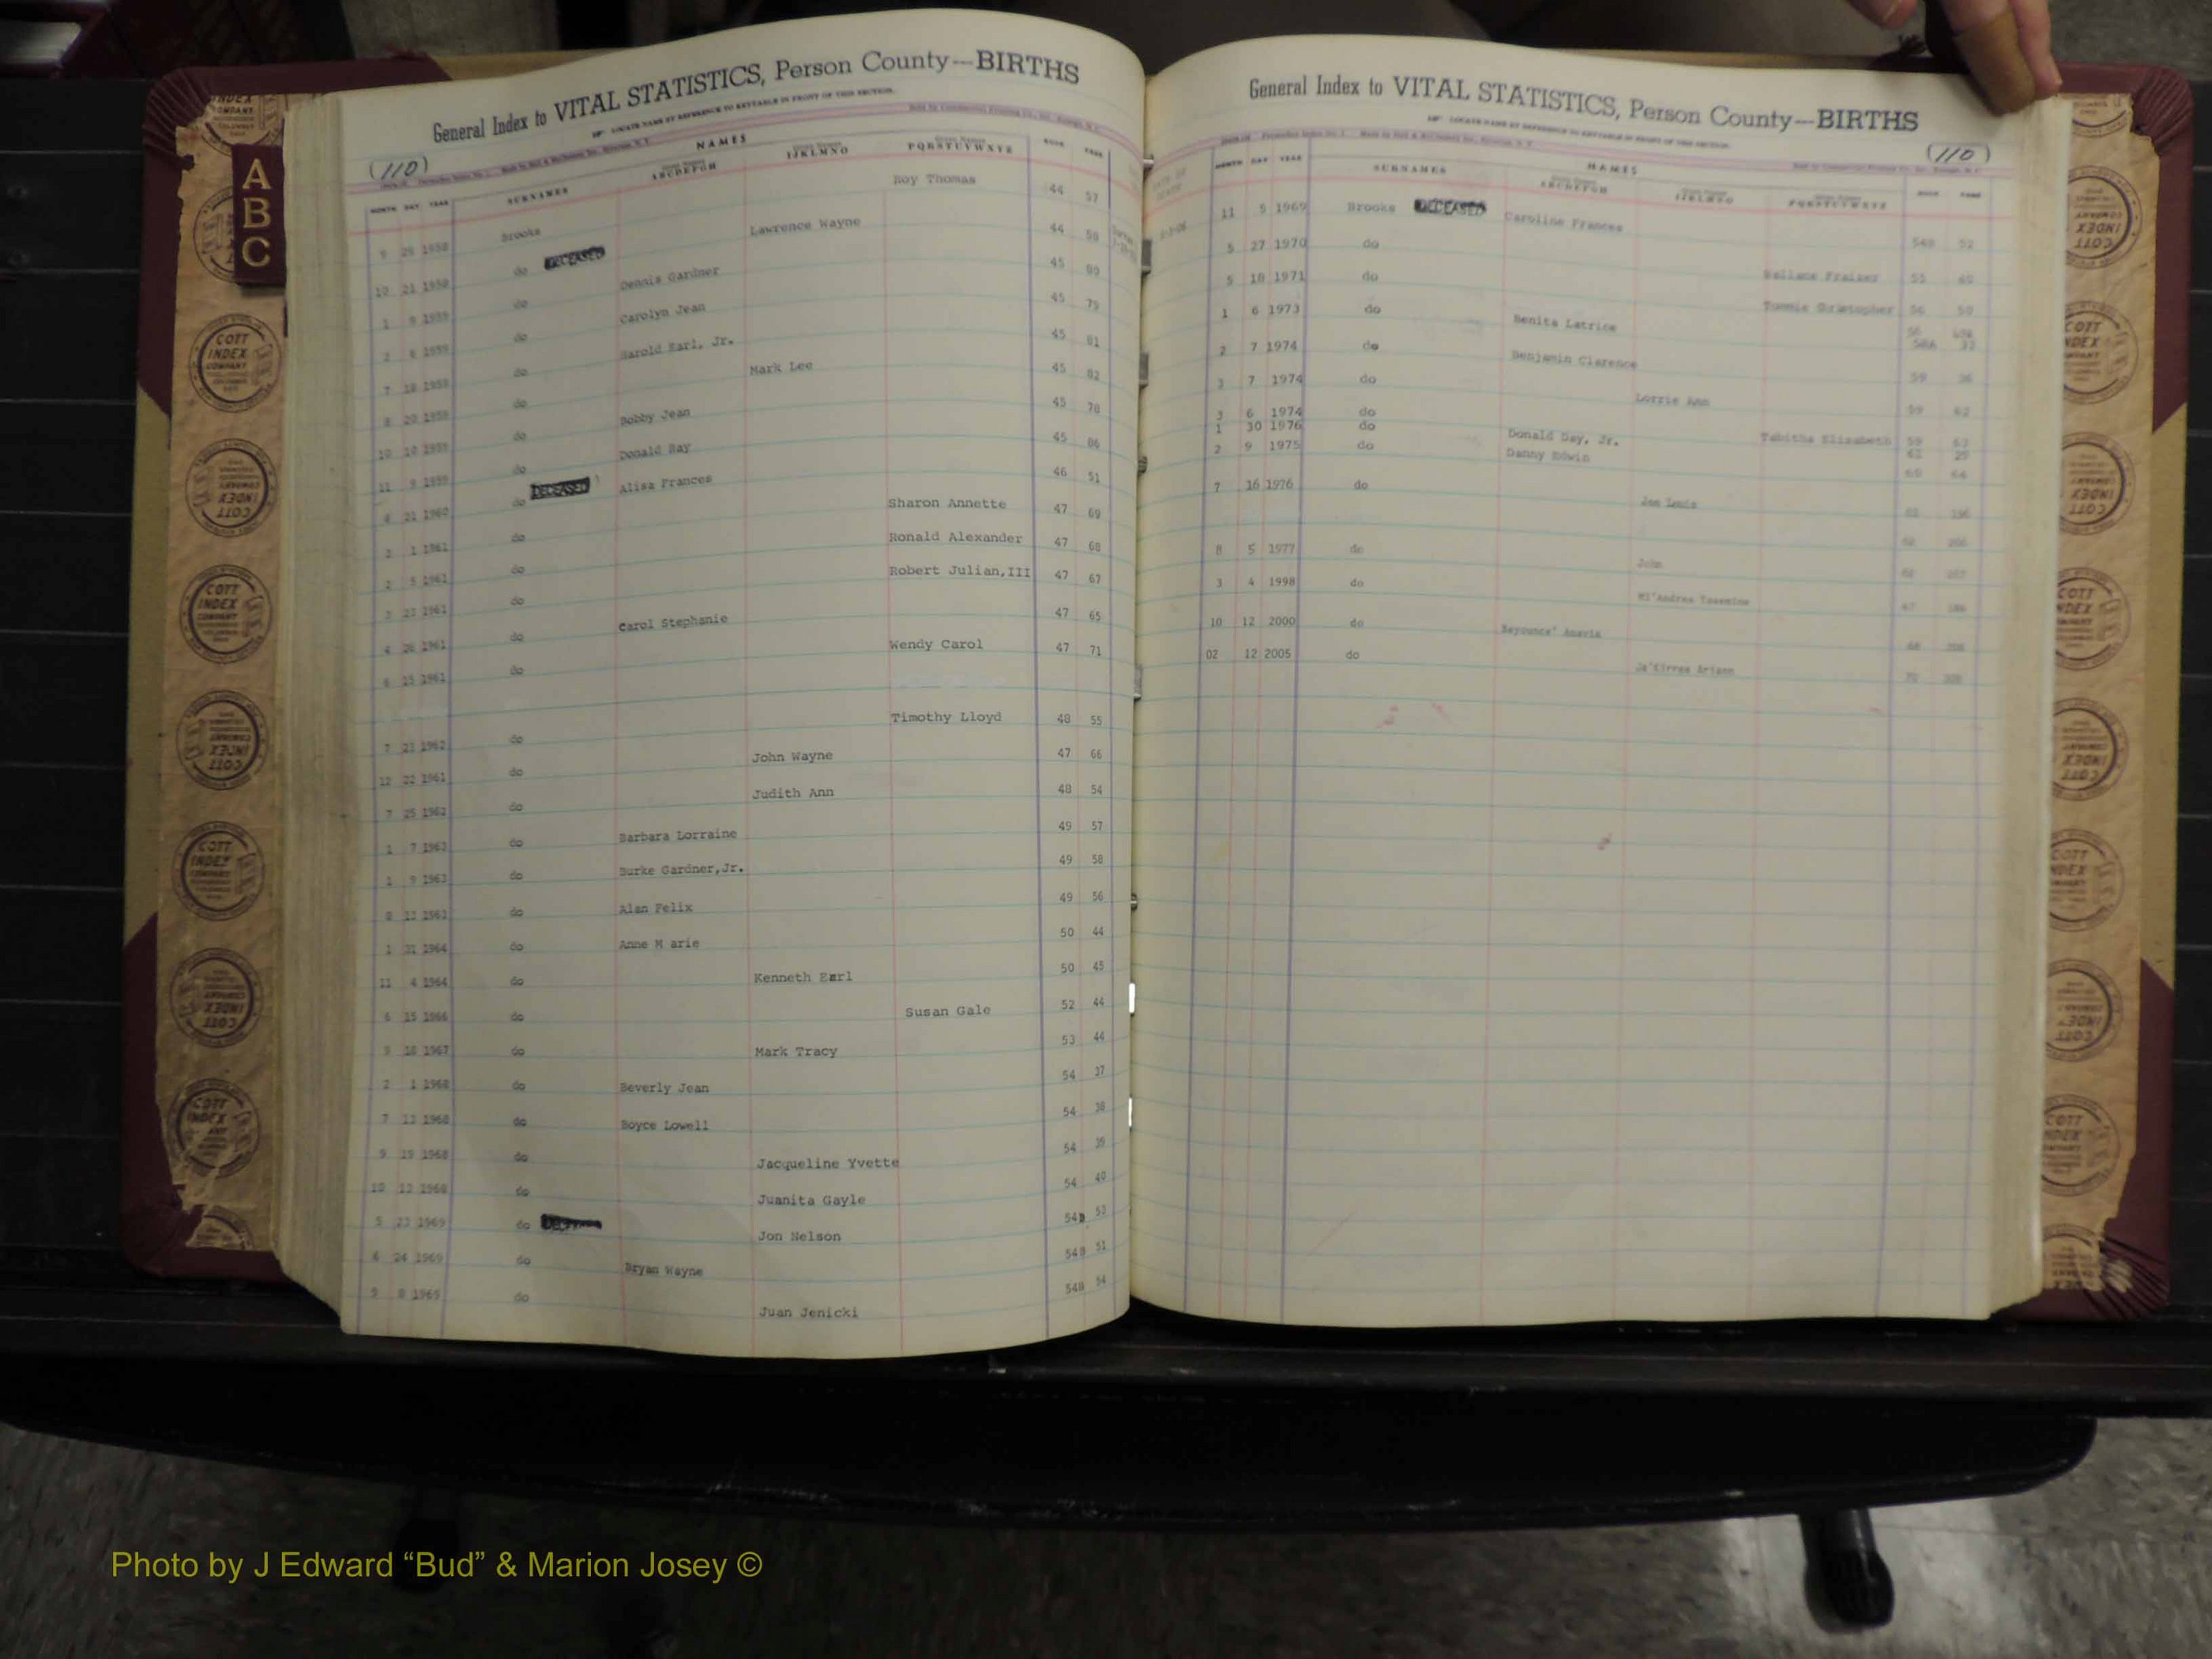 General Index to VITAL STATISTICS, Person County—BIRTHS
LOCATE NAME BY REFERENCE TO KEYTABLE IN FRONT OF THIS SECTION.
(110)
NAMES
MONTH DAY YEAR SURNAMES ABCDEFGH IJKLMNO PQRSTUVWXYZ BOOK PAGE
9 29 1958 Brooks Roy Thomas 44 57
10 21 1958 do DECEASED Lawrence Wayne 44 58
1 9 1959 do Dennis Gardner 45 80
8 1959 do Carolyn Jean 45 79
7 18 1959 do Harold Earl, Jr. 45 81
8 20 1959 do Mark Lee 45 82
10 10 1959 do Bobby Jean 45 78
11 9 1959 do Donald Ray 45 86
21 1960 do DECEASED Alisa Frances 46 51
1 1961 do Sharon Annette 47 69
2 5 1961 do Ronald Alexander 47 68
3 23 1961 do Robert Julian,III 47 67
4 26 1961 do Carol Stephanie 47 65
6 15 1961 do Wendy Carol 47 71
7 21 1962 do Timothy Lloyd 48 55
12 22 1961 do John Wayne 47 66
7 25 1962 do Judith Ann 48 54
1 7 1963 do Barbara Lorraine 49 57
1 9 1963 do Burke Gardner,Jr. 49 58
8 13 1963 do Alan Felix 49 56
1 31 1964 do Anne M arie 50 44
11 4 1964 do Kenneth Earl 50 45
6 15 1966 do Susan Gale 52 44
9 18 1967 do Mark Tracy 53 44
2 1 1968 do Beverly Jean 54 37
7 12 1968 do Boyce Lowell 54 38
9 19 1968 do Jacqueline Yvette 54 39
10 12 1968 do Juanita Gayle 54 40
5 23 1969 do Jon Nelson 54B 53
6 24 1969 do Bryan Wayne 54B 51
9 8 1969 do Juan Jenicki 54B 54
General Index to VITAL STATISTICS, Person County—BIRTHS
LOCATE NAME BY REFERENCE TO KEYTABLE IN FRONT OF THIS SECTION.
(110)
NAMES
MONTH DAY YEAR SURNAMES ABCDEFGH IJKLMNO PQRSTUVWXYZ BOOK PAGE
11 5 1969 Brooks DECEASED Caroline Frances 54B 52
5 27 1970 do 55 60
5 18 1971 do Tommie Christopher 56 50
1 6 1973 do Benita Latrice
2 7 1974 do Benjamin Clarence 59 36
3 7 1974 do Lorrie Ann 59 62
3 6 1974 do Tabitha Elizabeth 59 63
1 30 1976 do Donald Day, Jr. 61 25
2 9 1975 do Danny Edwin 60 64
7 16 1976 do Joe Louis
8 5 1977 do John
3 4 1998 do
10 12 2000 do
02 12 2005 do
A
B
C
COTT
INDEX
COMPANY
Photo by J Edward “Bud” & Marion Josey ©